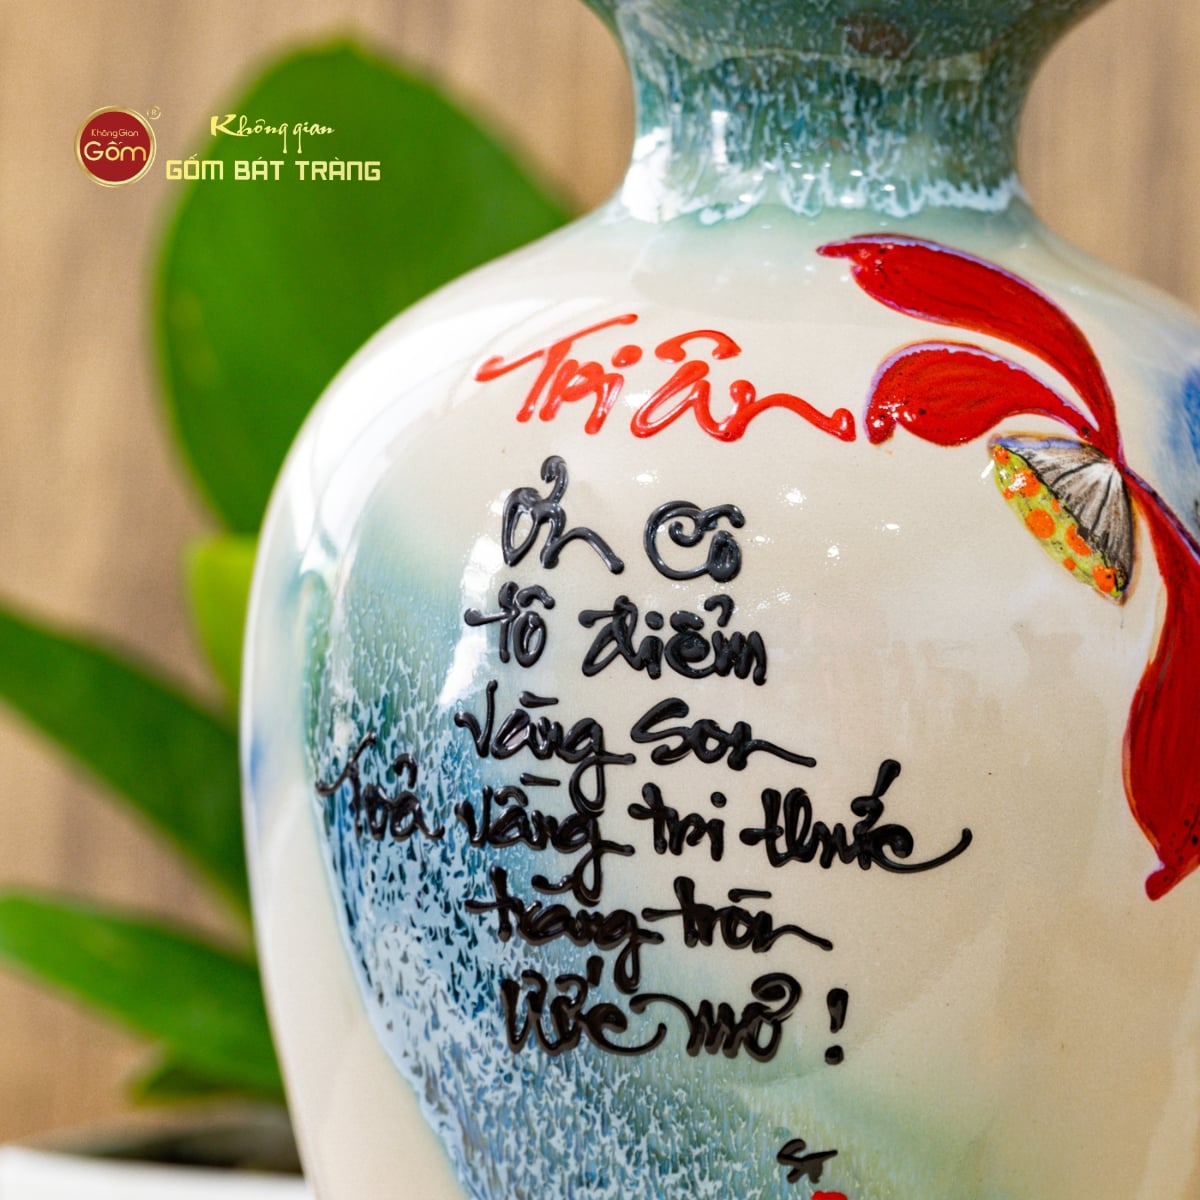 Không Gian
Gốm
Không gian
GỐM BÁT TRÀNG
Tri ân
Ơn Cô
tô điểm
vàng son
Toả vầng tri thức
trăng tròn
Ước mơ !